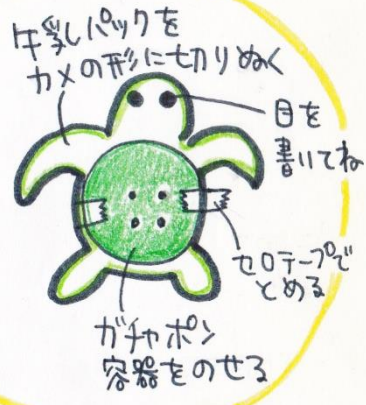 牛乳パックを
カメの形に切りぬく
目を
書いてね
セロテープで
とめる
ガチャポン
容器をのせる